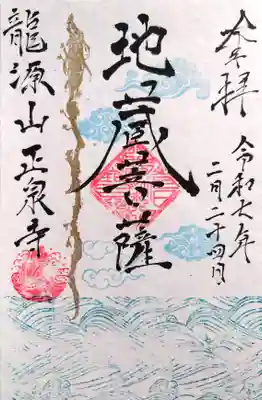 奉拝
令和六年
二月二十四日
地蔵菩薩
龍源山 正泉寺